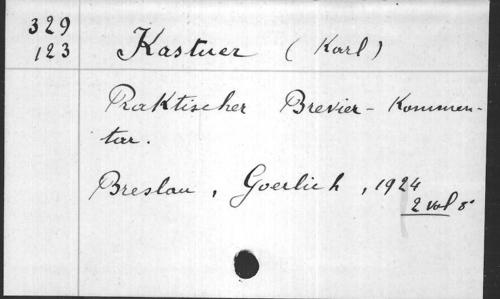 329
123
Kastner (Karl)
Praktischer Brevier - Kommen-
tar.
Breslau, Goerlich, 1924
2 vol 8°